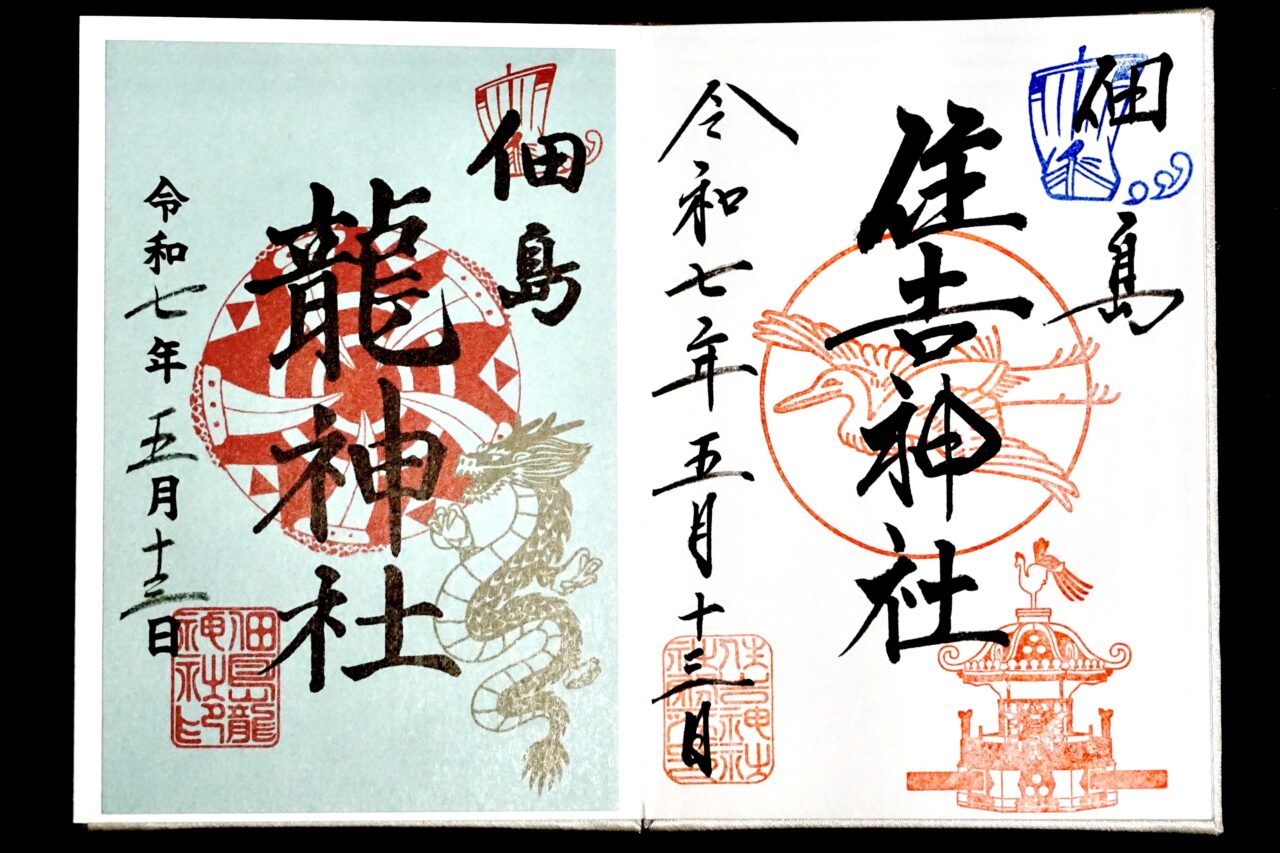 佃島
住吉神社
令和七年五月十三日
住吉神社
佃島
龍神社
令和七年五月十三日
佃島龍
神社印